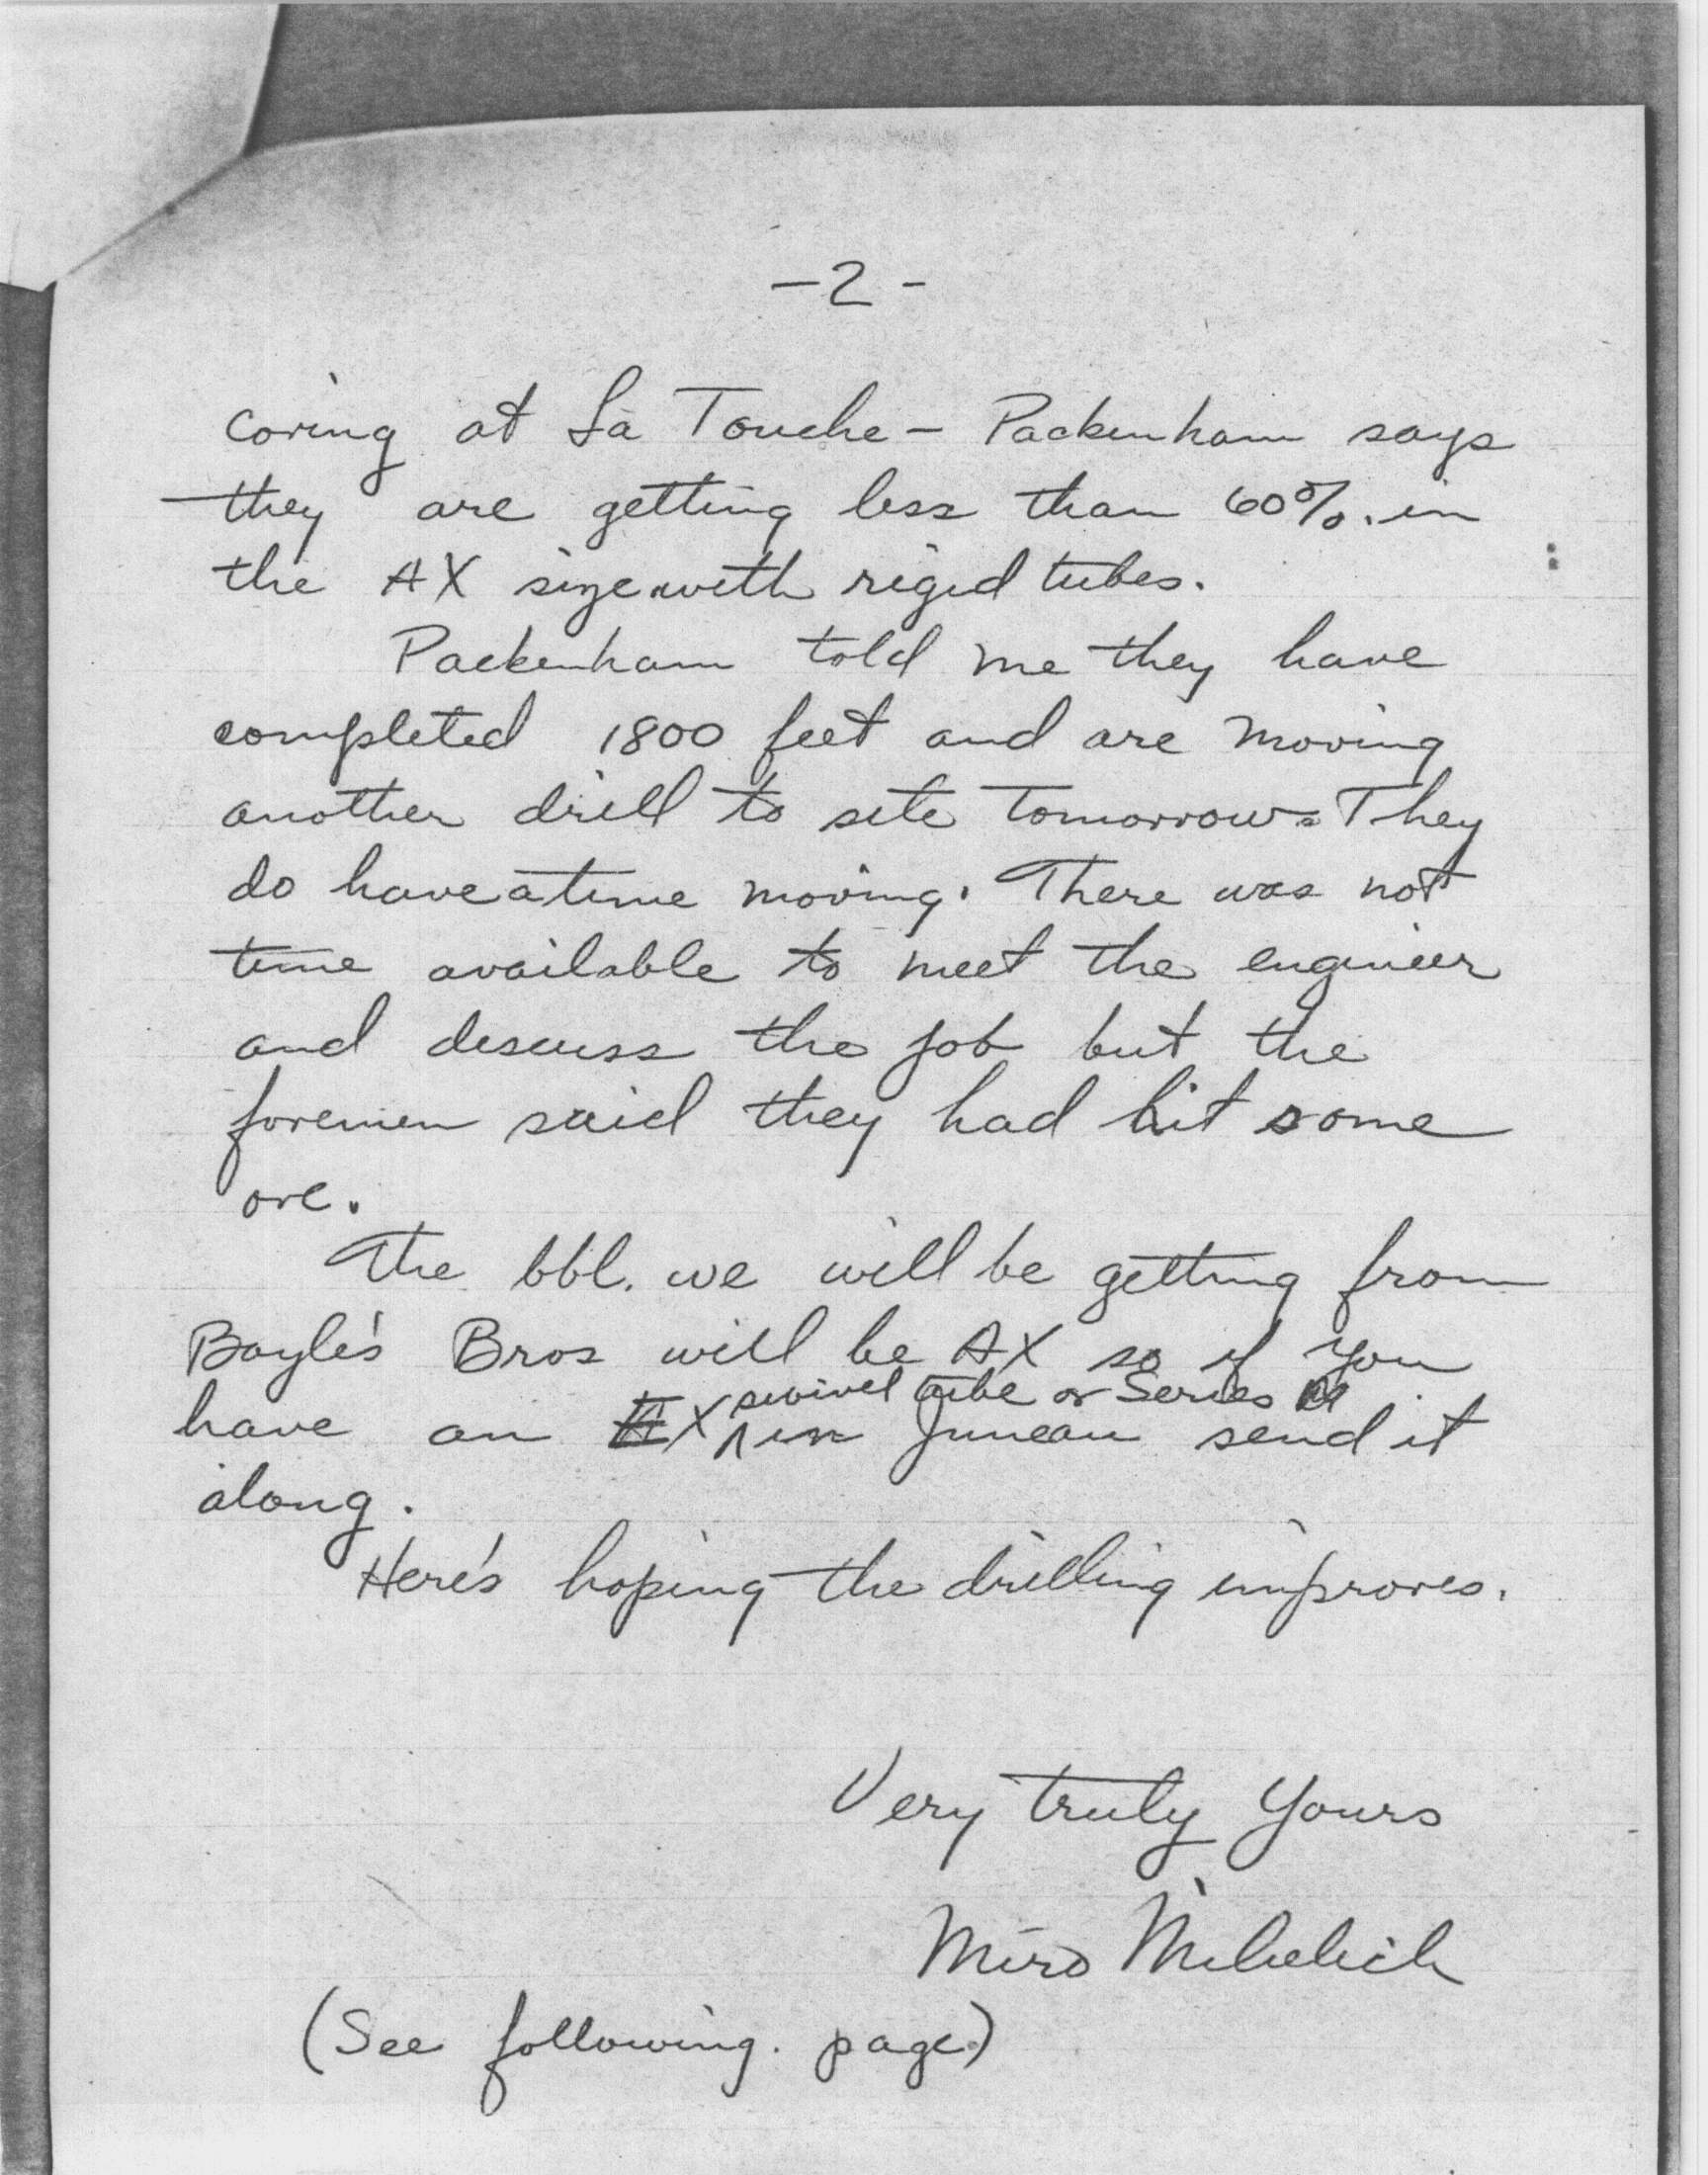 -2-
coring at La Touche - Packenham says
they are getting less than 60%. in
the AX size with rigid tubes.
Packenham told me they have
completed 1800 feet and are moving
another drill to site tomorrow. They
do have a time moving. There was not
time available to meet the engineer
and discuss the job but the
foremen said they had hit some
ore.
The bbl. we will be getting from
Boyle's Bros will be AX so if you
swivel tube or Series M
have an EX in Juneau send it
along.
Here's hoping the drilling improves.
Very truly yours
Miro Mihelich
(See following page)